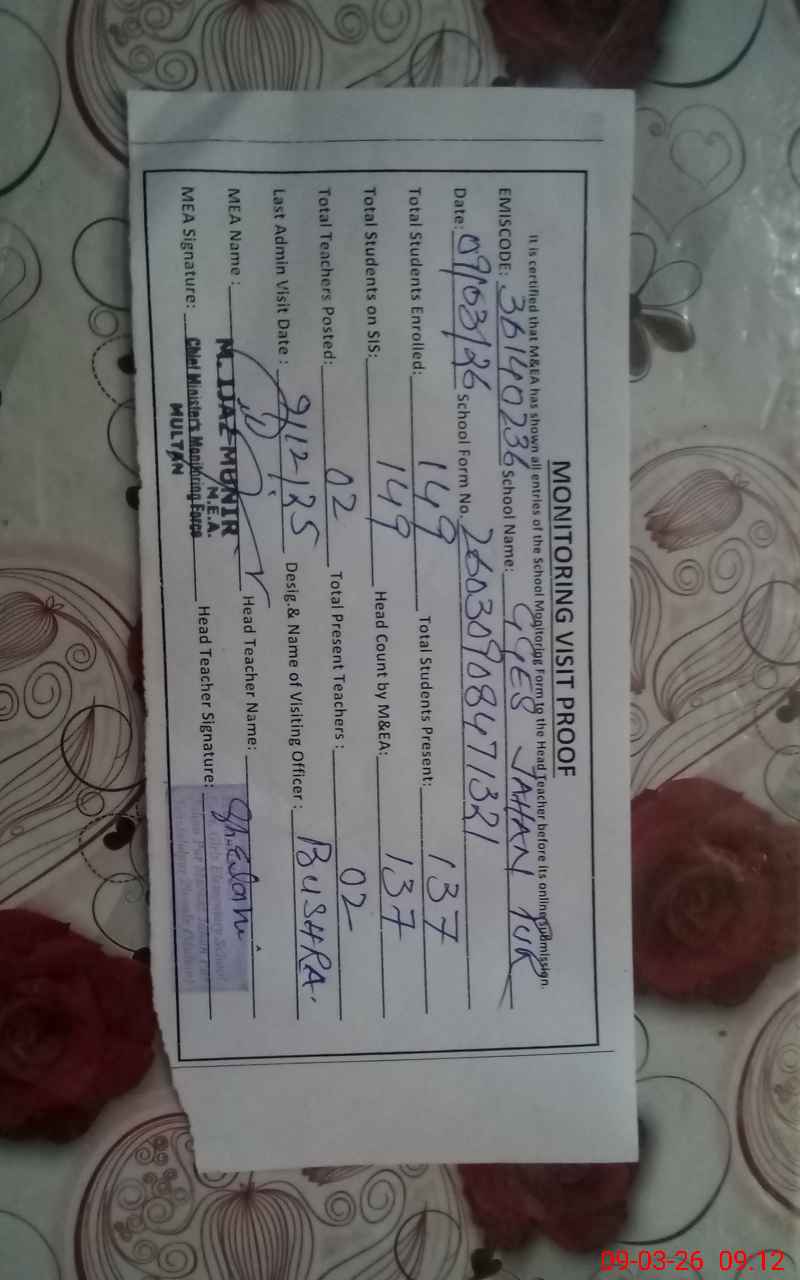 MONITORING VISIT PROOF
It is certified that M&EA has shown all entries of the School Monitoring Form to the Head Teacher before its online submission.
EMISCODE: 36140236 School Name: GGES JAHAN PUR
Date: 09/03/26 School Form No. 26030908471321
Total Students Enrolled: 149 Total Students Present: 137
Total Students on SIS: 149 Head Count by M&EA: 137
Total Teachers Posted: 02 Total Present Teachers : 02
Last Admin Visit Date : 9/12/25 Desig.& Name of Visiting Officer : BUSHRA.
MEA Name : M. IJAZ MUNIR Head Teacher Name:
M.E.A.
MEA Signature: Chief Minister's Monitoring Force Head Teacher Signature:
MULTAN
Girls Elementary School
09-03-26 09:12